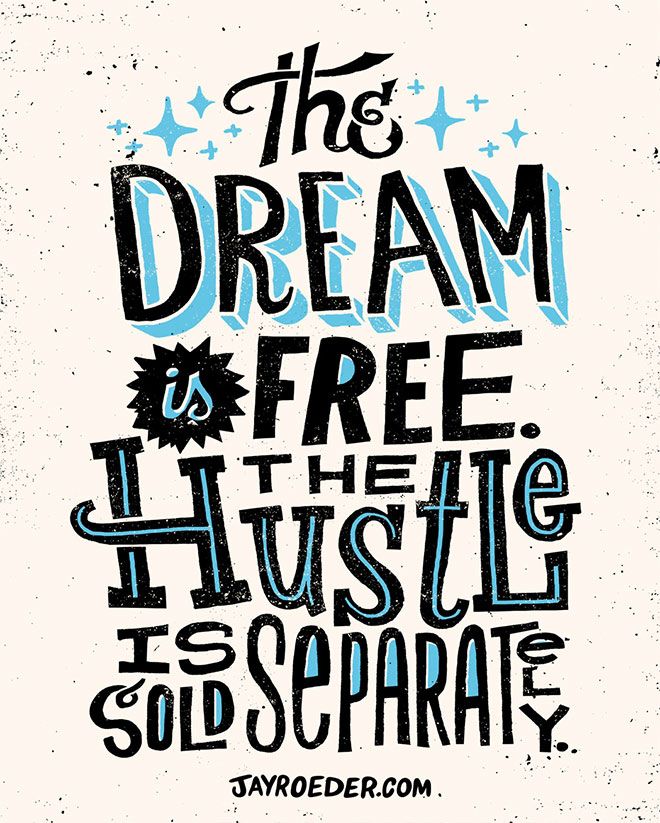 The
DREAM
is FREE.
THE
HUSTLE
IS
SOLD SEPARATELY.
JAYROEDER.COM.